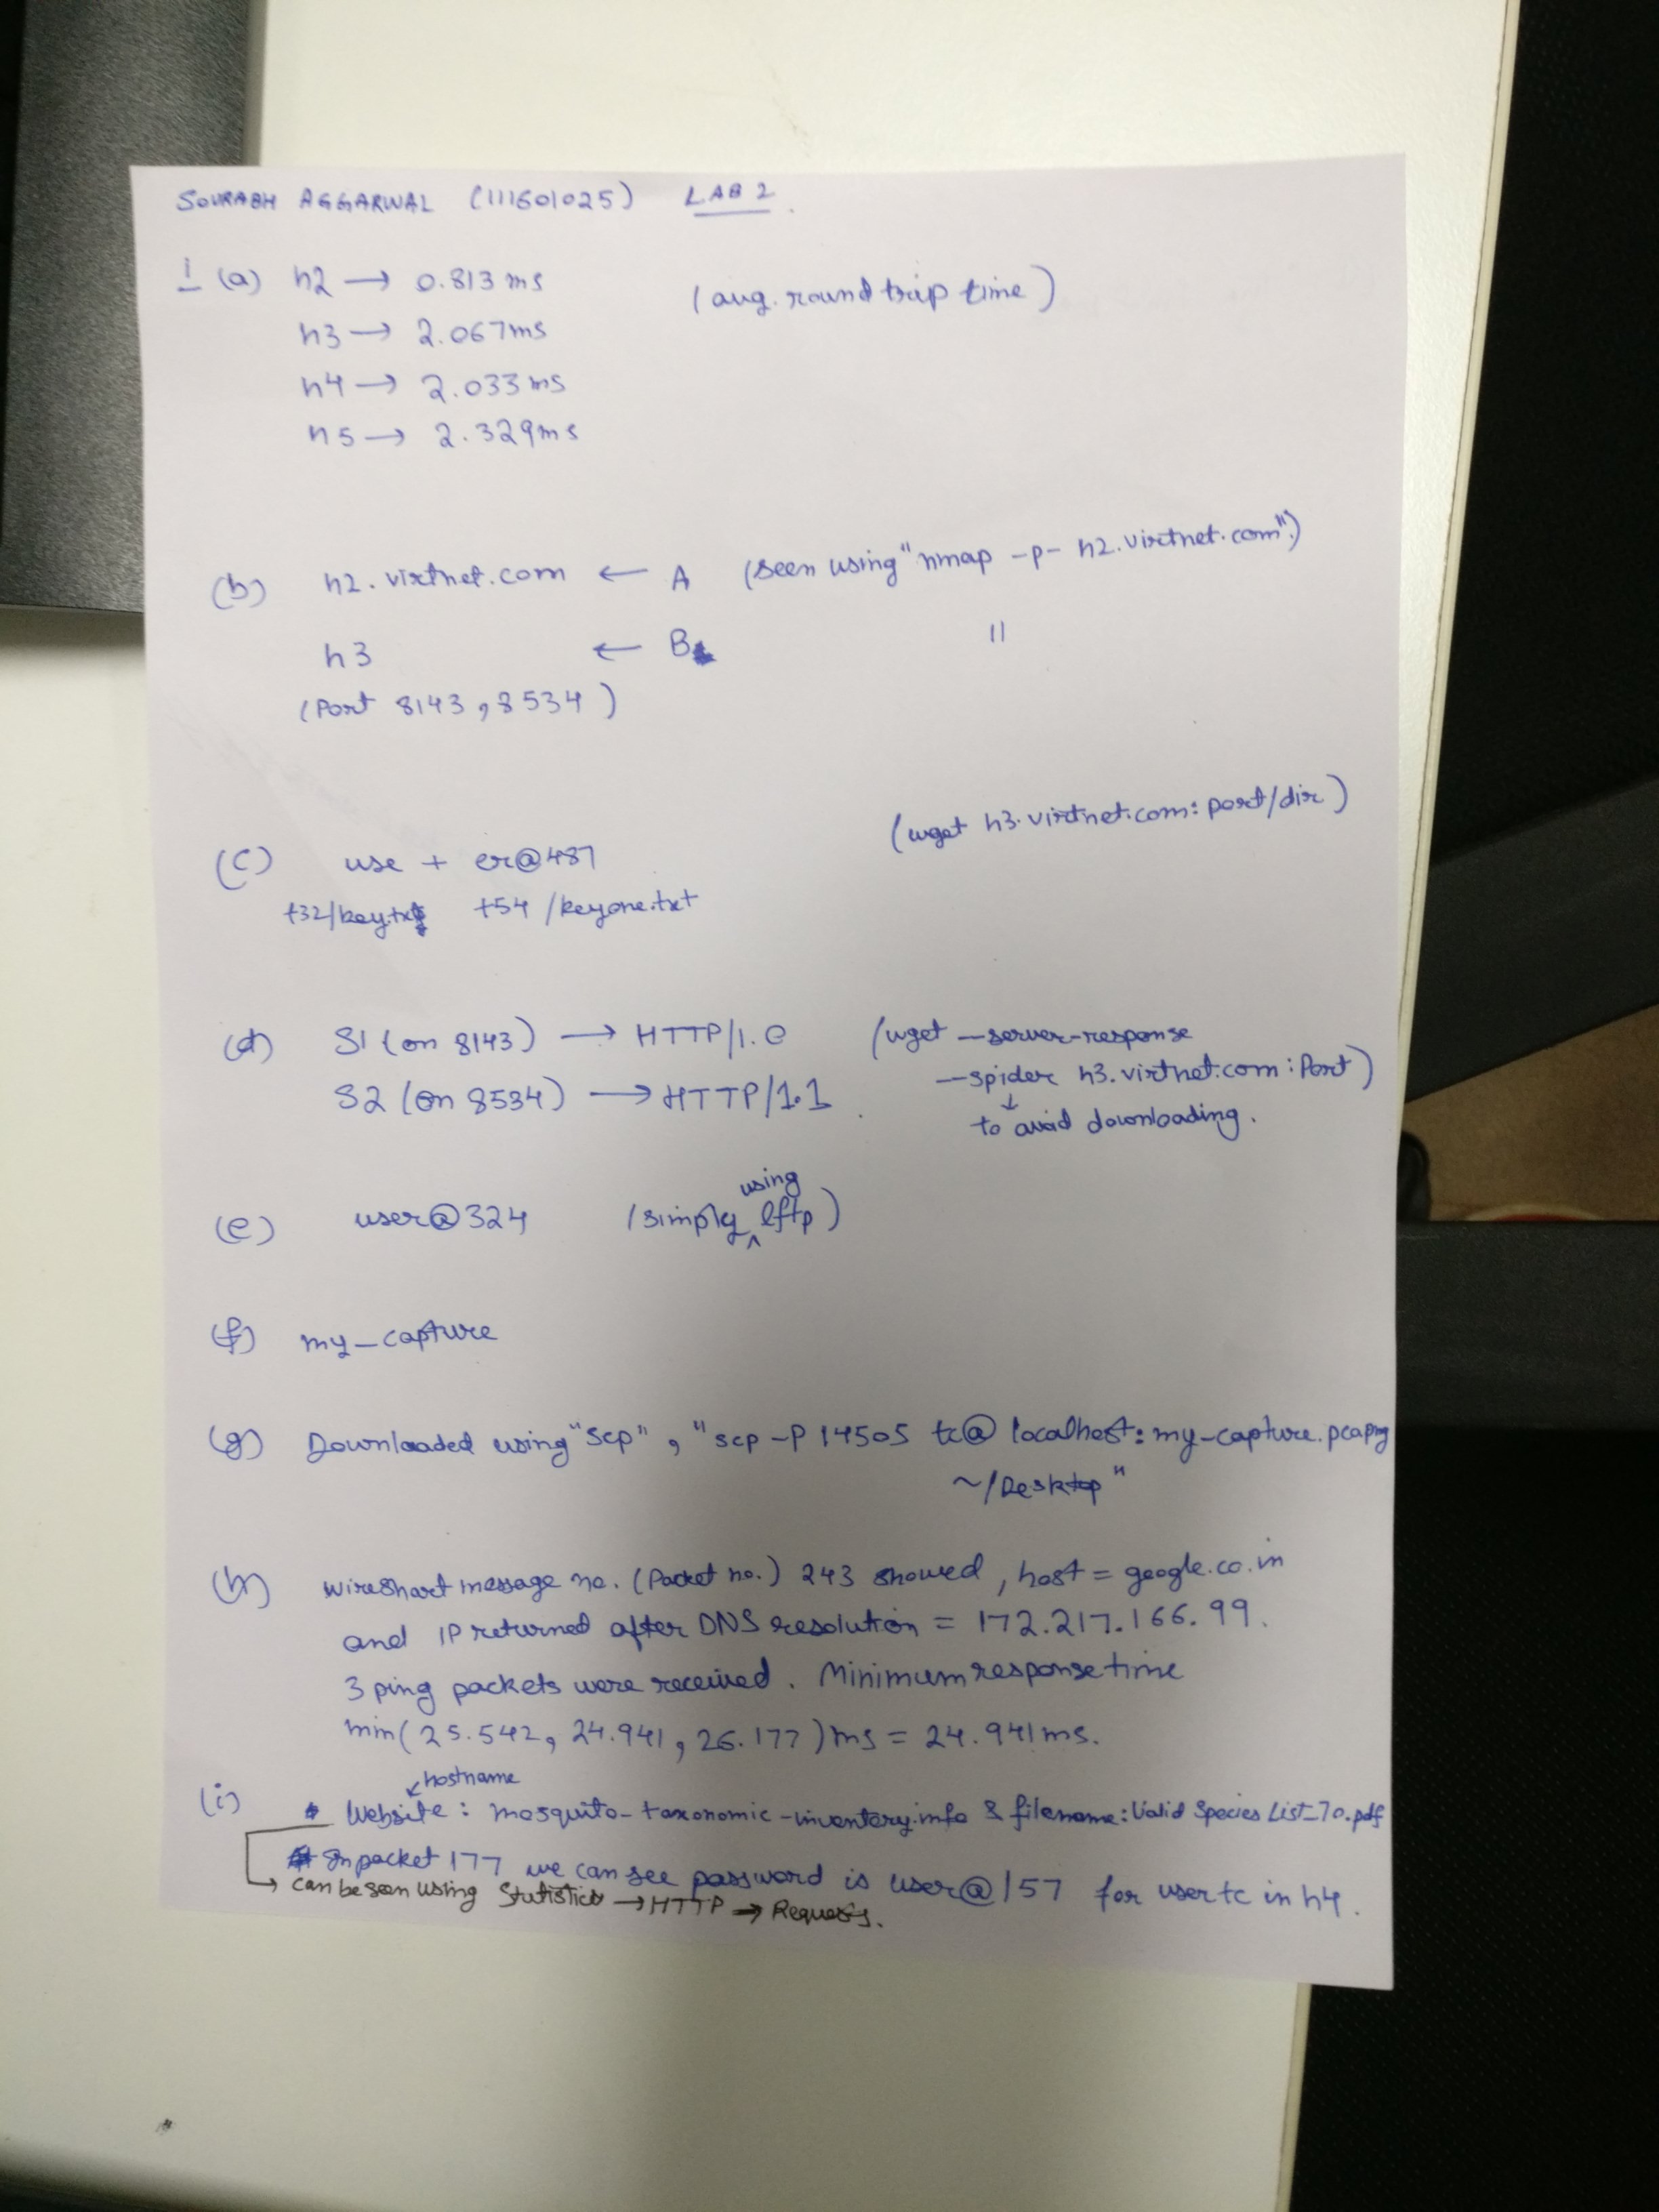 SOURABH AGGARWAL (111601025) LAB 2
1 (a) h2 → 0.813 ms (avg. round trip time)
h3 → 2.067ms
h4 → 2.033 ms
h5 → 2.329ms
(b) h2.virtnet.com ← A (seen using "nmap -p- h2.virtnet.com")
h3 ← B "
(Port 8143, 8534)
(wget h3.virtnet.com:port/dir)
(c) use + er@487
t32/key.txt t54/keyone.txt
(d) S1 (on 8143) → HTTP/1.0 (wget --server-response
--spider h3.virtnet.com:Port)
S2 (on 8534) → HTTP/1.1.
↓
to avoid downloading.
(e) user@324 (simply using lftp)
(f) my_capture
(g) Downloaded using "scp", "scp -P 14505 tc@localhost:my-capture.pcapng
~/Desktop"
(h) wireshart message no. (Packet no.) 243 showed, host = google.co.in
and IP returned after DNS resolution = 172.217.166.99.
3 ping packets were received. Minimum response time
min(25.542, 24.941, 26.177)ms = 24.941ms.
hostname
(i) Website: mosquito-taxonomic-inventory.info & filename: Valid Species List_70.pdf
In packet 177 we can see password is user@157 for user tc in h4.
→ can be seen using Statistics → HTTP → Requests.